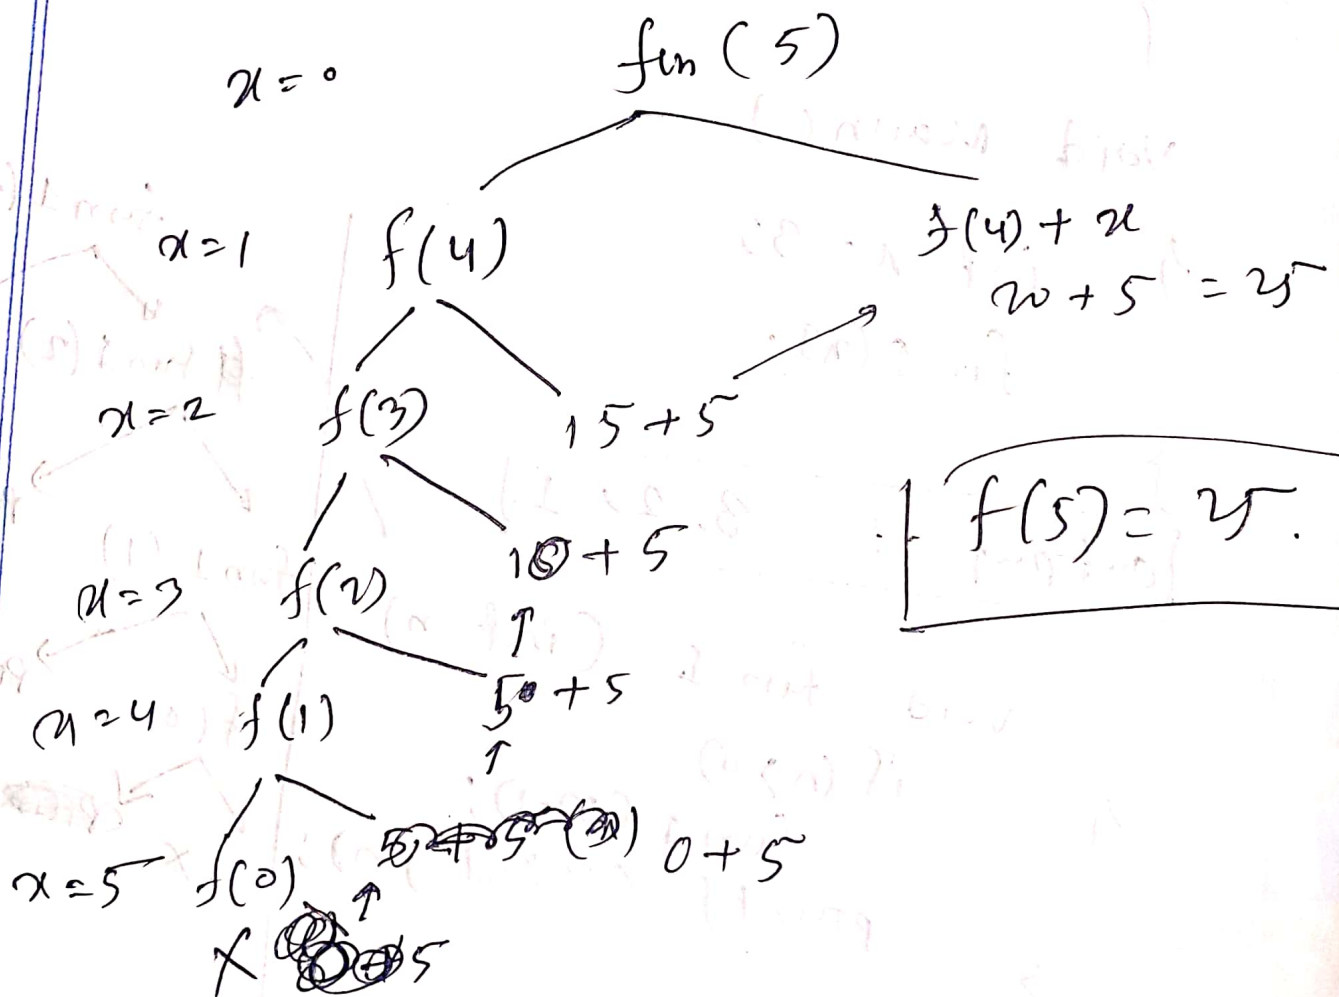 x=0
fun(5)
x=1
f(4)
f(4)+x
20+5=25
x=2
f(3)
15+5
f(5)=25.
x=3
f(2)
10+5
↑
x=4
f(1)
5+5
↑
x=5
f(0)
0+5
↑
X
5